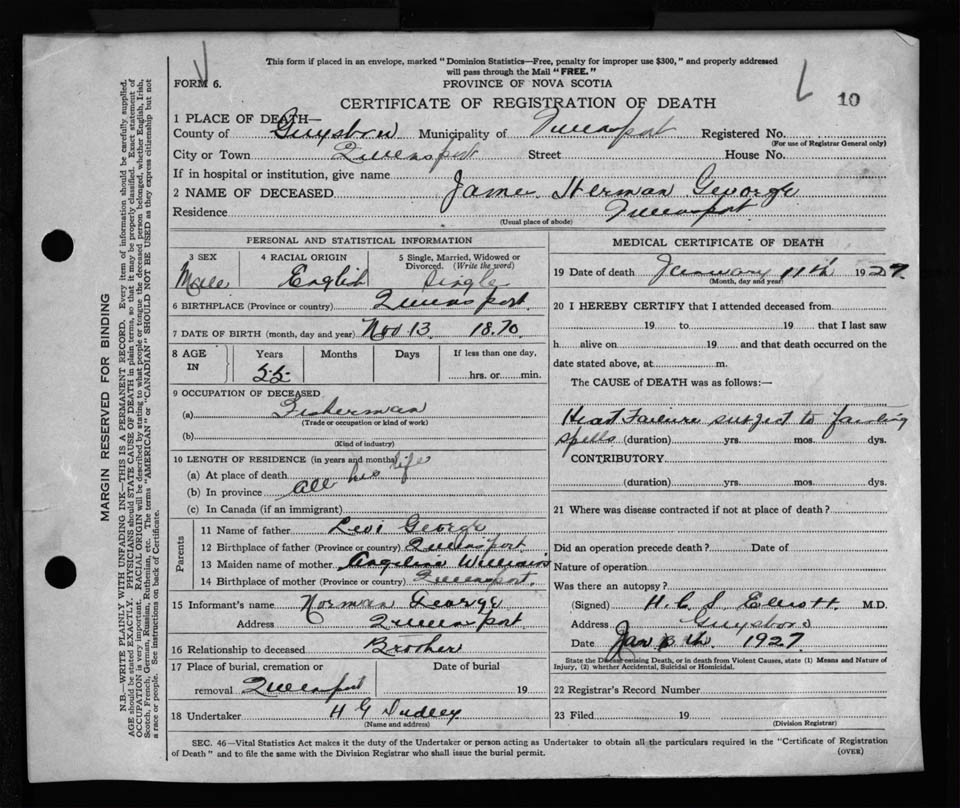 This form if placed in an envelope, marked "Dominion Statistics—Free, penalty for improper use $300," and properly addressed
will pass through the Mail "FREE."
FORM 6.
PROVINCE OF NOVA SCOTIA
10
CERTIFICATE OF REGISTRATION OF DEATH
1 PLACE OF DEATH—
County of Guysboro Municipality of Registered No.
(For use of Registrar General only)
City or Town Queensport Street House No.
If in hospital or institution, give name
2 NAME OF DECEASED James Herman George
Residence Queensport
(Usual place of abode)
PERSONAL AND STATISTICAL INFORMATION
3 SEX 4 RACIAL ORIGIN 5 Single, Married, Widowed or Divorced. (Write the word)
Male English Single
6 BIRTHPLACE (Province or country) Queensport
7 DATE OF BIRTH (month, day and year) Nov 13 1870
8 AGE IN Years Months Days If less than one day,
55 hrs. or min.
9 OCCUPATION OF DECEASED
(a) Fisherman
(Trade or occupation or kind of work)
(b)
(Kind of industry)
10 LENGTH OF RESIDENCE (in years and months)
(a) At place of death all his life
(b) In province
(c) In Canada (if an immigrant)
Parents
11 Name of father Levi George
12 Birthplace of father (Province or country) Queensport
13 Maiden name of mother Angelina Williams
14 Birthplace of mother (Province or country) Queensport.
15 Informant's name Norman George
Address Queensport
16 Relationship to deceased Brother
17 Place of burial, cremation or Date of burial
removal Queensport 19
18 Undertaker H G Dudley
(Name and address)
MEDICAL CERTIFICATE OF DEATH
19 Date of death January 11th 1927
(Month, day and year)
20 I HEREBY CERTIFY that I attended deceased from
19 to 19 that I last saw
h alive on 19 and that death occurred on the
date stated above, at m.
The CAUSE of DEATH was as follows:—
Heart Failure subject to fainting
spells (duration) yrs. mos. dys.
CONTRIBUTORY
(duration) yrs. mos. dys.
21 Where was disease contracted if not at place of death?
Did an operation precede death? Date of
Nature of operation
Was there an autopsy?
(Signed) H. C. S. Elliott M.D.
Address Guysboro
Date Jan 1927
State the Disease causing Death, or in death from Violent Causes, state (1) Means and Nature of
Injury, (2) whether Accidental, Suicidal or Homicidal.
22 Registrar's Record Number
23 Filed 19
(Division Registrar)
SEC. 46—Vital Statistics Act makes it the duty of the Undertaker or person acting as Undertaker to obtain all the particulars required in the "Certificate of Registration
of Death" and to file the same with the Division Registrar who shall issue the burial permit.
(OVER)
MARGIN RESERVED FOR BINDING
N.B.—WRITE PLAINLY WITH UNFADING INK—THIS IS A PERMANENT RECORD. Every item of information should be carefully supplied.
AGE should be stated EXACTLY. PHYSICIANS should STATE CAUSE OF DEATH in plain terms, so that it may be properly classified. Exact statement of
OCCUPATION is very important. RACIAL ORIGIN will be described by stating to what people or tongue the deceased person belonged, whether English, Irish,
Scotch, French, German, Russian, Ruthenian, etc. The terms "AMERICAN" or "CANADIAN" SHOULD NOT BE USED as they express citizenship but not
a race or people. See instructions on back of Certificate.